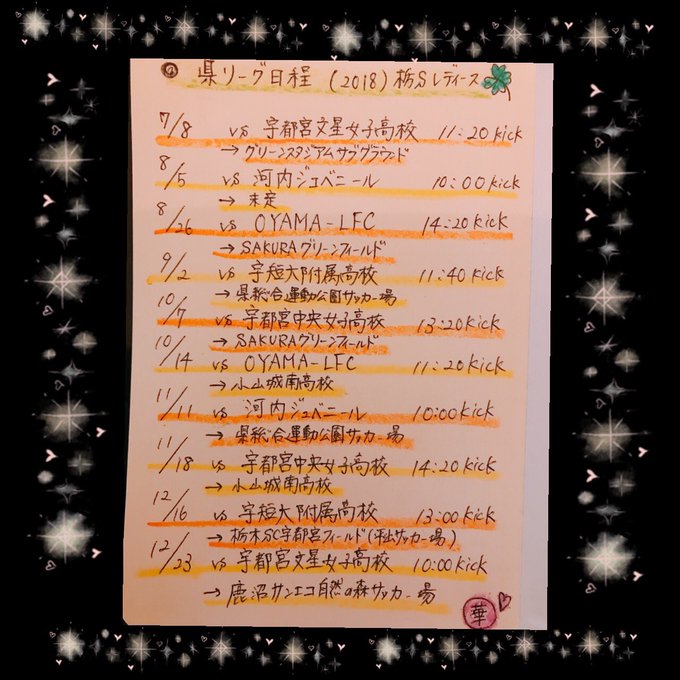 県リーグ日程 (2018) 栃Sレディース
7/8 vs 宇都宮文星女子高校 11:20 kick
→ グリーンスタジアムサブグラウンド
8/5 vs 河内ジュベニール 10:00 kick
→ 未定
8/26 vs OYAMA-LFC 14:20 kick
→ SAKURAグリーンフィールド
9/2 vs 宇短大附属高校 11:40 kick
→ 県総合運動公園サッカー場
10/7 vs 宇都宮中央女子高校 13:20 kick
→ SAKURAグリーンフィールド
10/14 vs OYAMA-LFC 11:20 kick
→ 小山城南高校
11/11 vs 河内ジュベニール 10:00 kick
→ 県総合運動公園サッカー場
11/18 vs 宇都宮中央女子高校 14:20 kick
→ 小山城南高校
12/16 vs 宇短大附属高校 13:00 kick
→ 栃木SC宇都宮フィールド(サッカー場)
12/23 vs 宇都宮文星女子高校 10:00 kick
→ 鹿沼サンエコ自然の森サッカー場
華